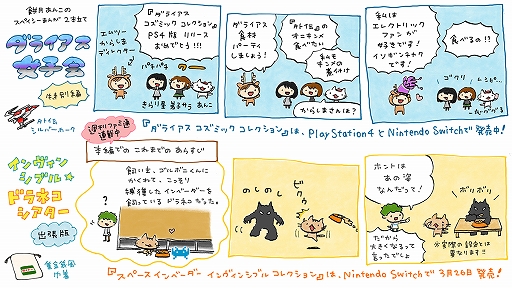 餅月あんこの
スペシーまんが 2本立て
ダライアス
女子会
体験版編
タトイ的
シルバーホーク
エムツー
からしま
ディレクター
『ダライアス
コズミック コレクション』
PS4版 リリース
おめでとう!!!
パチパチ
きらり屋
若さサラ
あんこ
ダライアス
食材
パーティ
しましょう!
『外伝』の
オニキンメ
食べたい
私も
キンメの
煮付け
からしまさんは?
私は
エレクトリック
ファンが
好きです!
イソギンチャク
です!
食べるの!?
ゴクリ
レシピ…
『ダライアス コズミック コレクション』は、PlayStation4 と Nintendo Switchで 発売中!
インヴィン
シブル☆
ドラネコ
シアター
出張版
週刊ファミ通
連載中
本編での これまでの あらすじ
飼い主、ゴルボンくんに
かくれて、こっそり
捕獲した インベーダーを
飼っている ドラネコだった。
?
のしのし
ビクウッ
ホントは
あの姿
なんだって!
だから
大きくなるって
言ったでしょ
ボリボリ
※実際の設定とは
異なります!!
『スペースインベーダー インヴィンシブル コレクション』は、Nintendo Switchで 3月26日 発売!